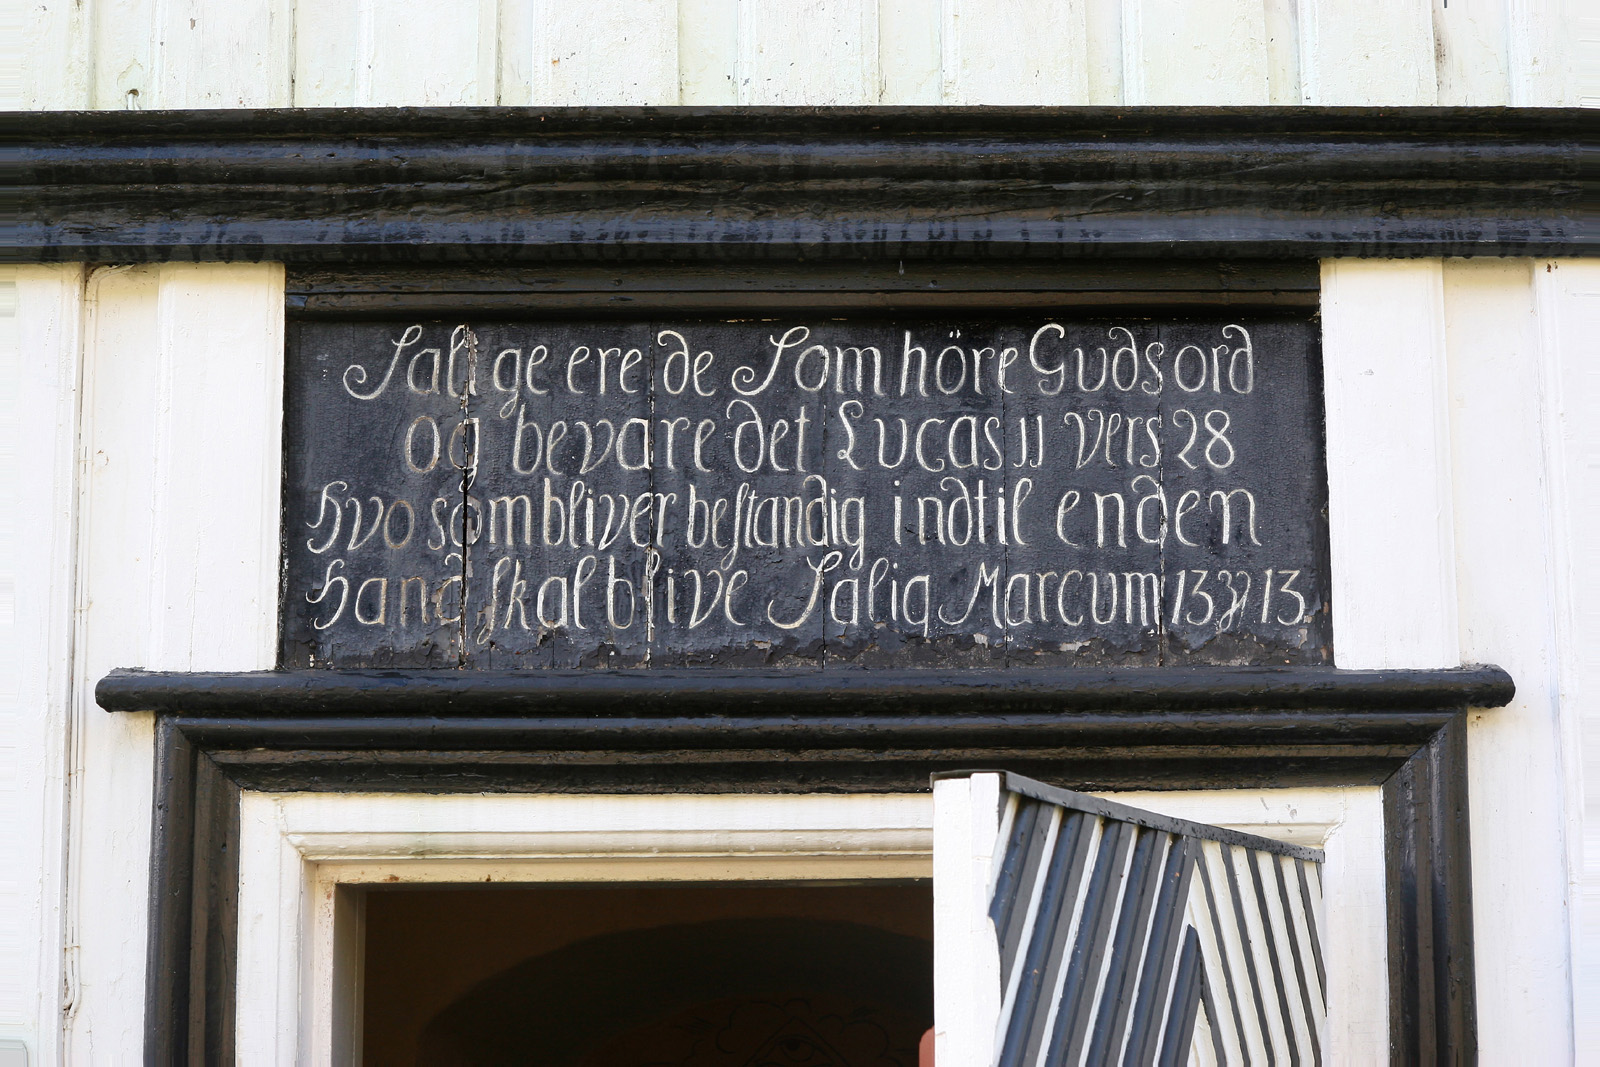 Salige ere de Som höre Guds ord
og bevare det Lucas 11 Vers 28
hvo som bliver beſtandig indtil enden
hand ſkal blive Salig Marcum 13 v 13